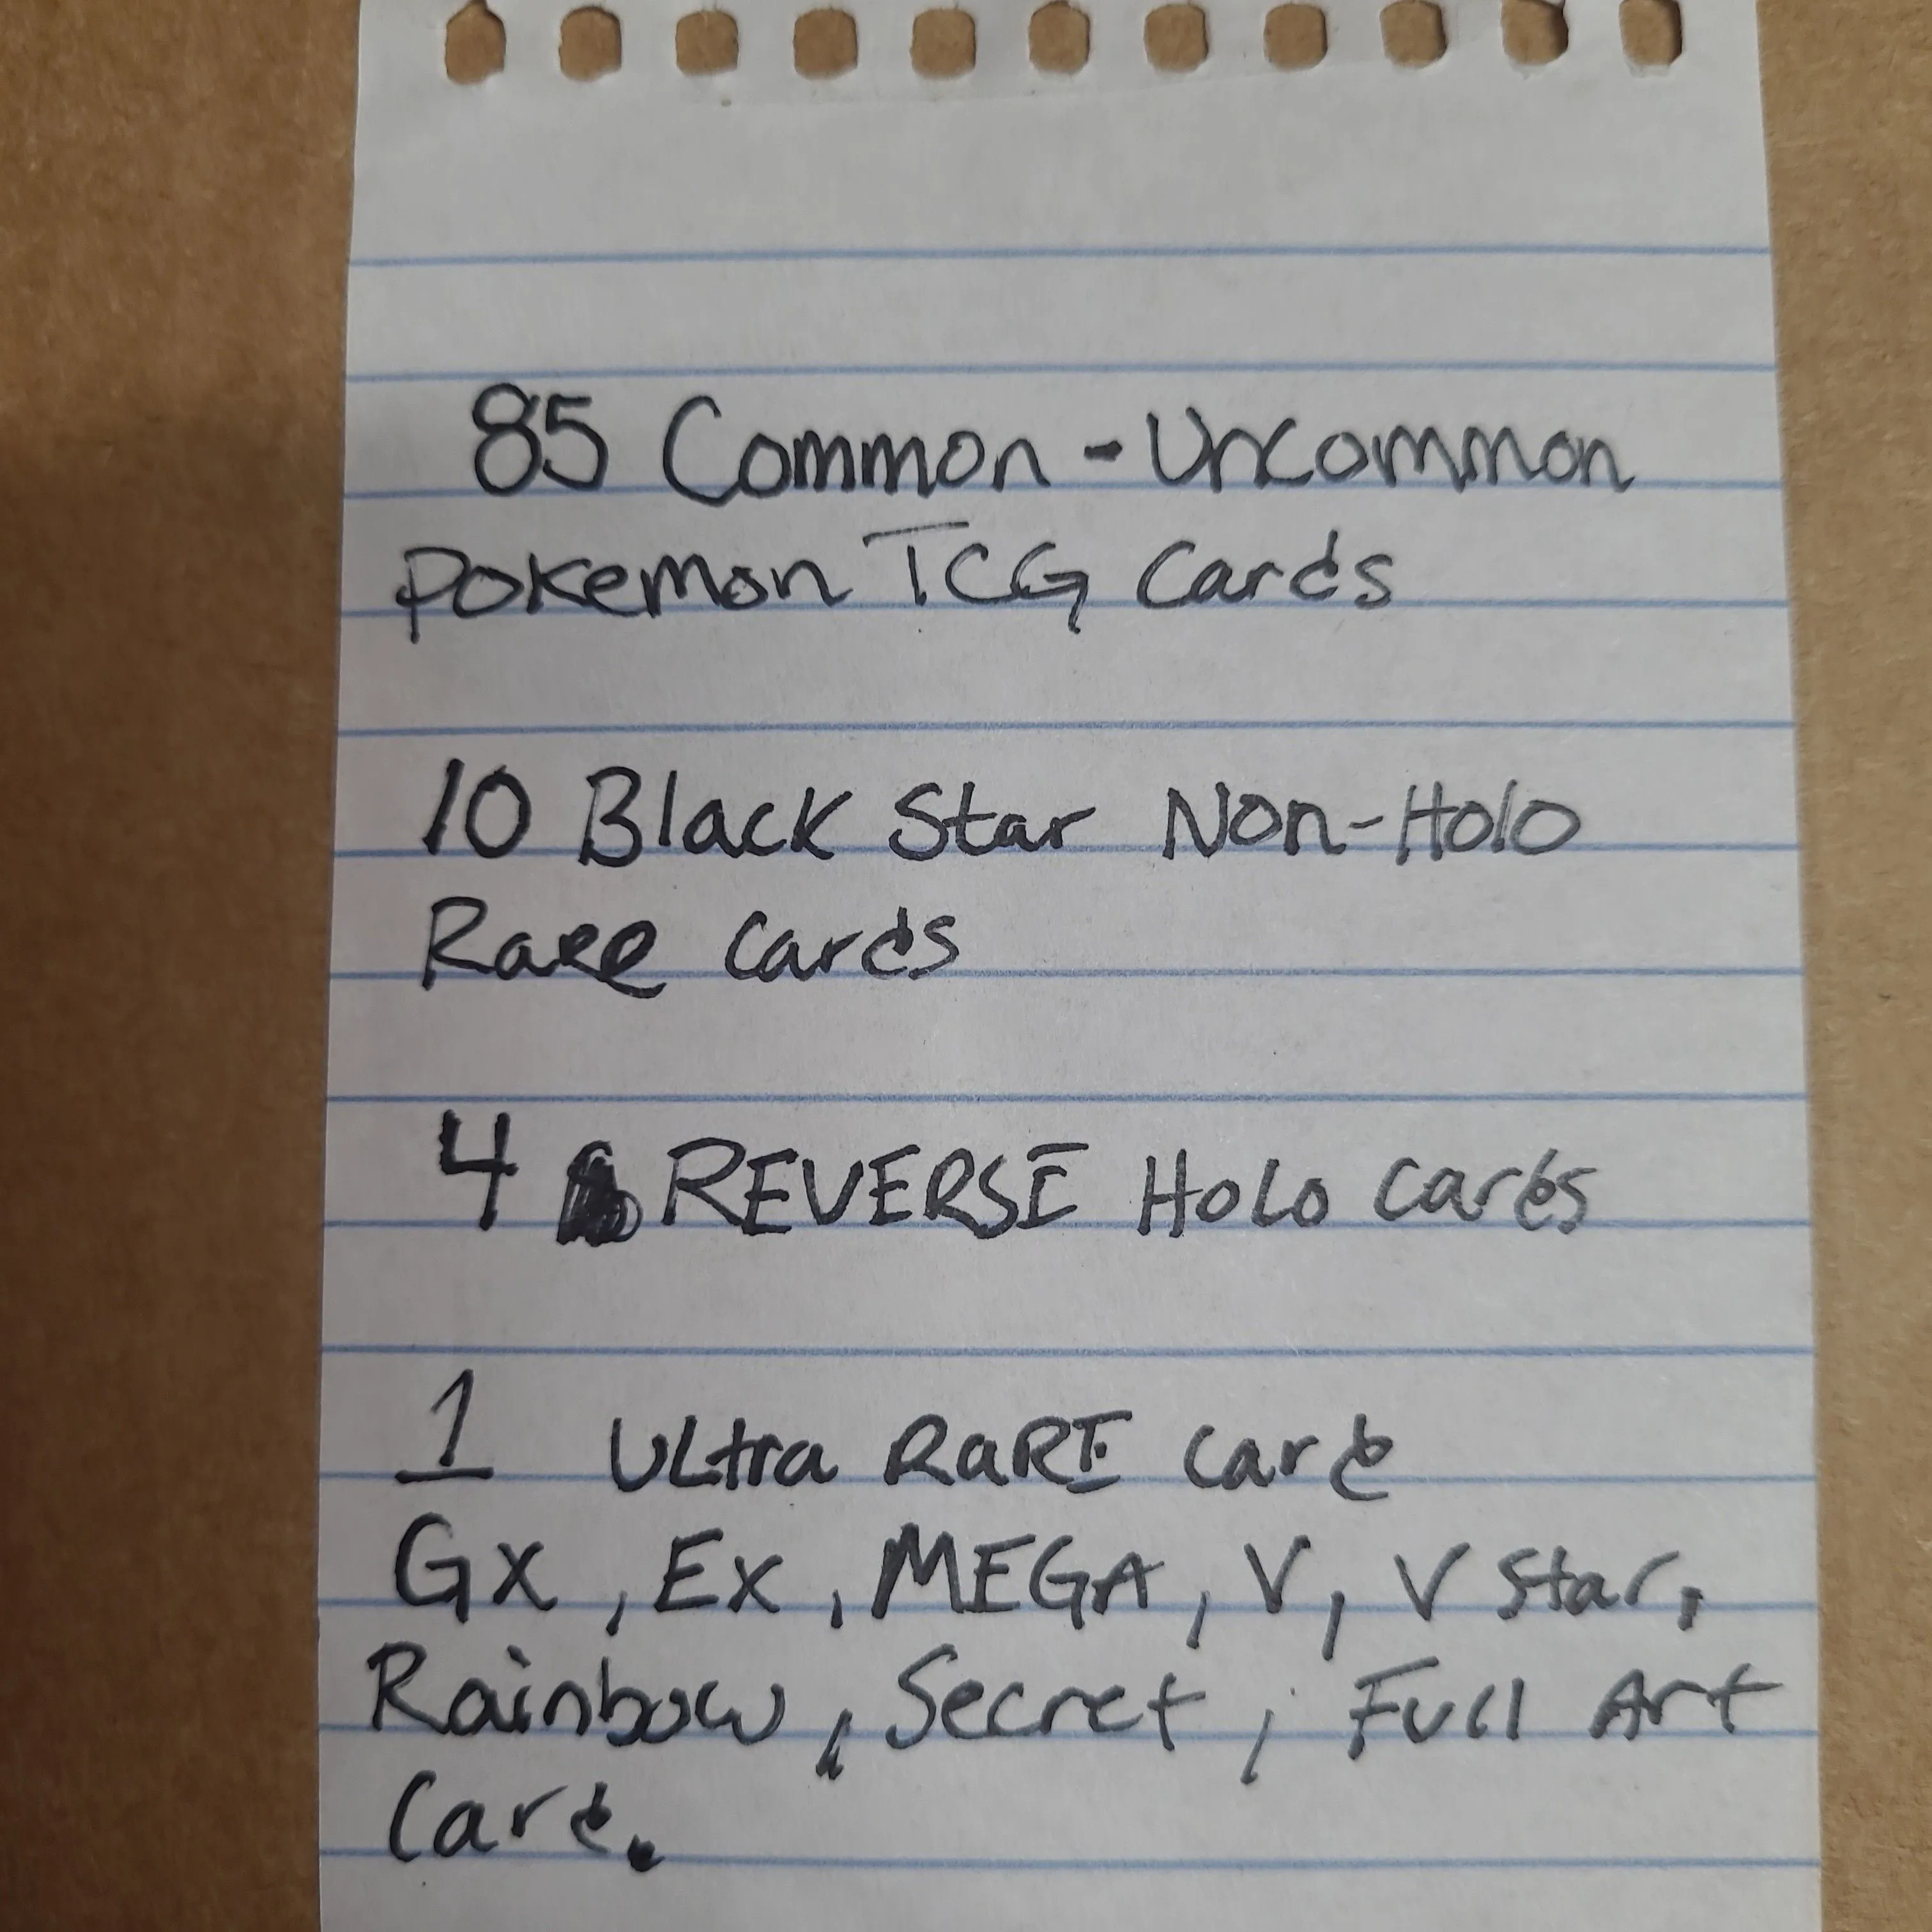 85 Common - Uncommon
Pokemon TCG Cards
10 Black Star Non-Holo
Rare Cards
4 REVERSE HoLo Cards
1 ULtra RaRE Card
GX, EX, MEGA, V, V Star,
Rainbow, Secret, Full Art
Card.